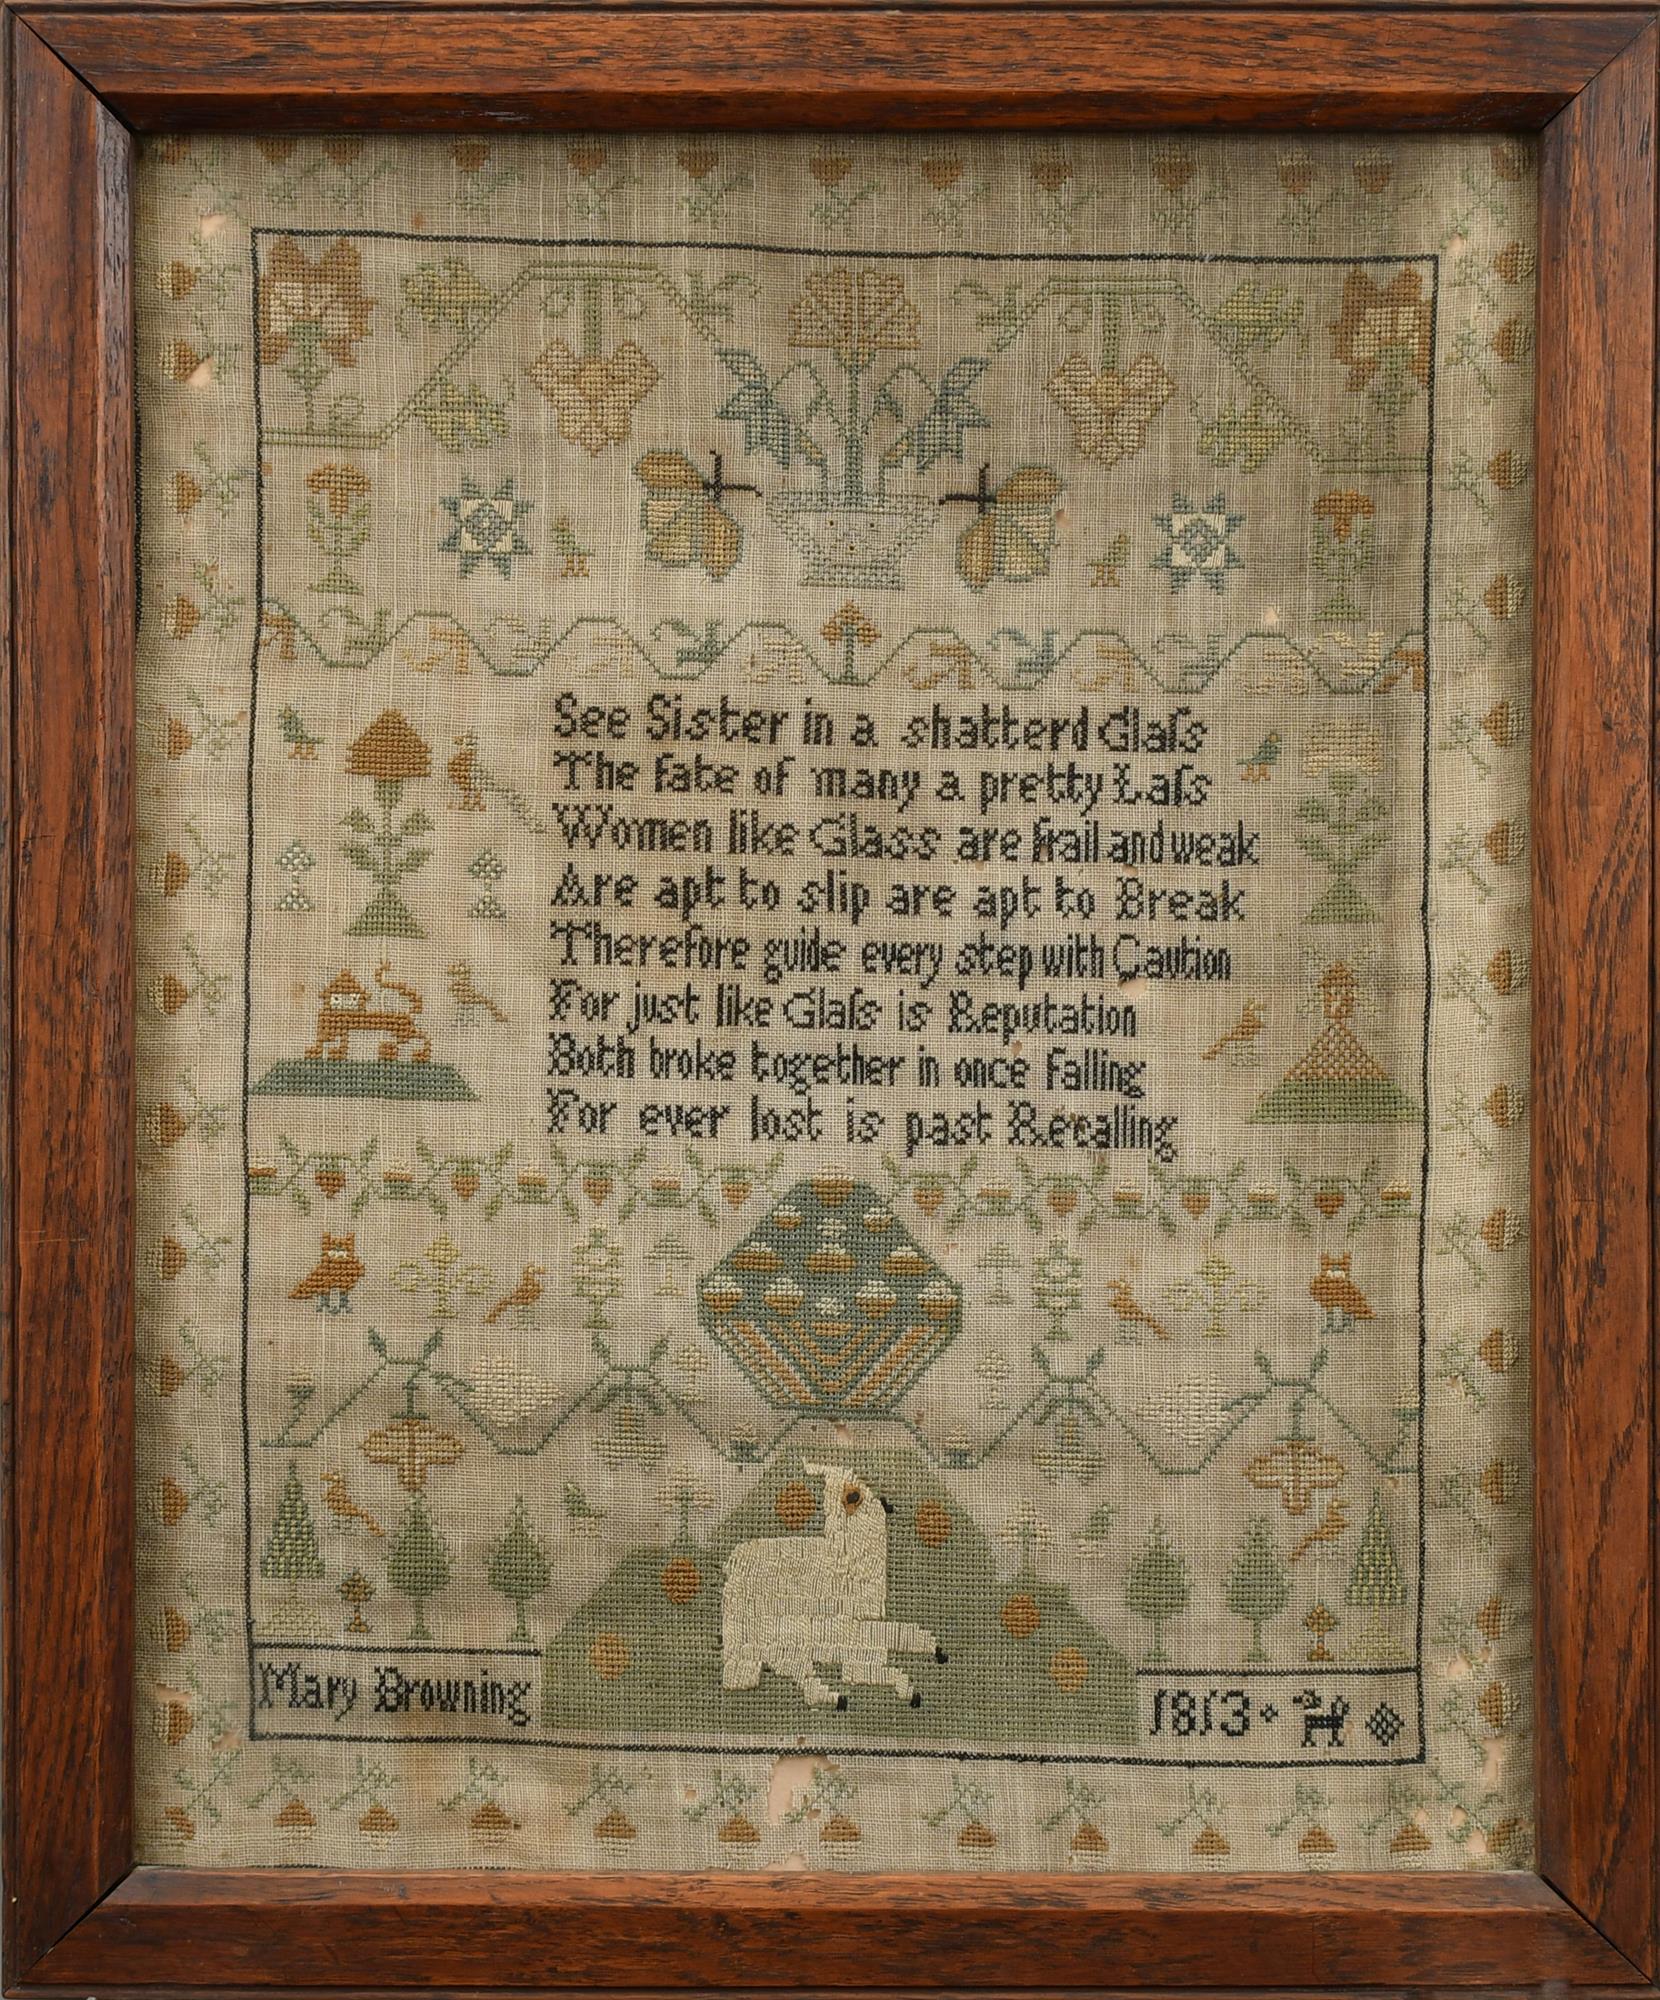 See Sister in a shatterd Glaſs
The fate of many a pretty Laſs
Women like Glass are frail and weak
Are apt to slip are apt to Break
Therefore guide every step with Caution
For just like Glaſs is Reputation
Both broke together in once falling
For ever lost is past Recalling
Mary Browning
1813